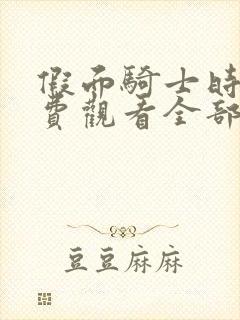 假面騎士時
費觀看全部
豆豆麻麻